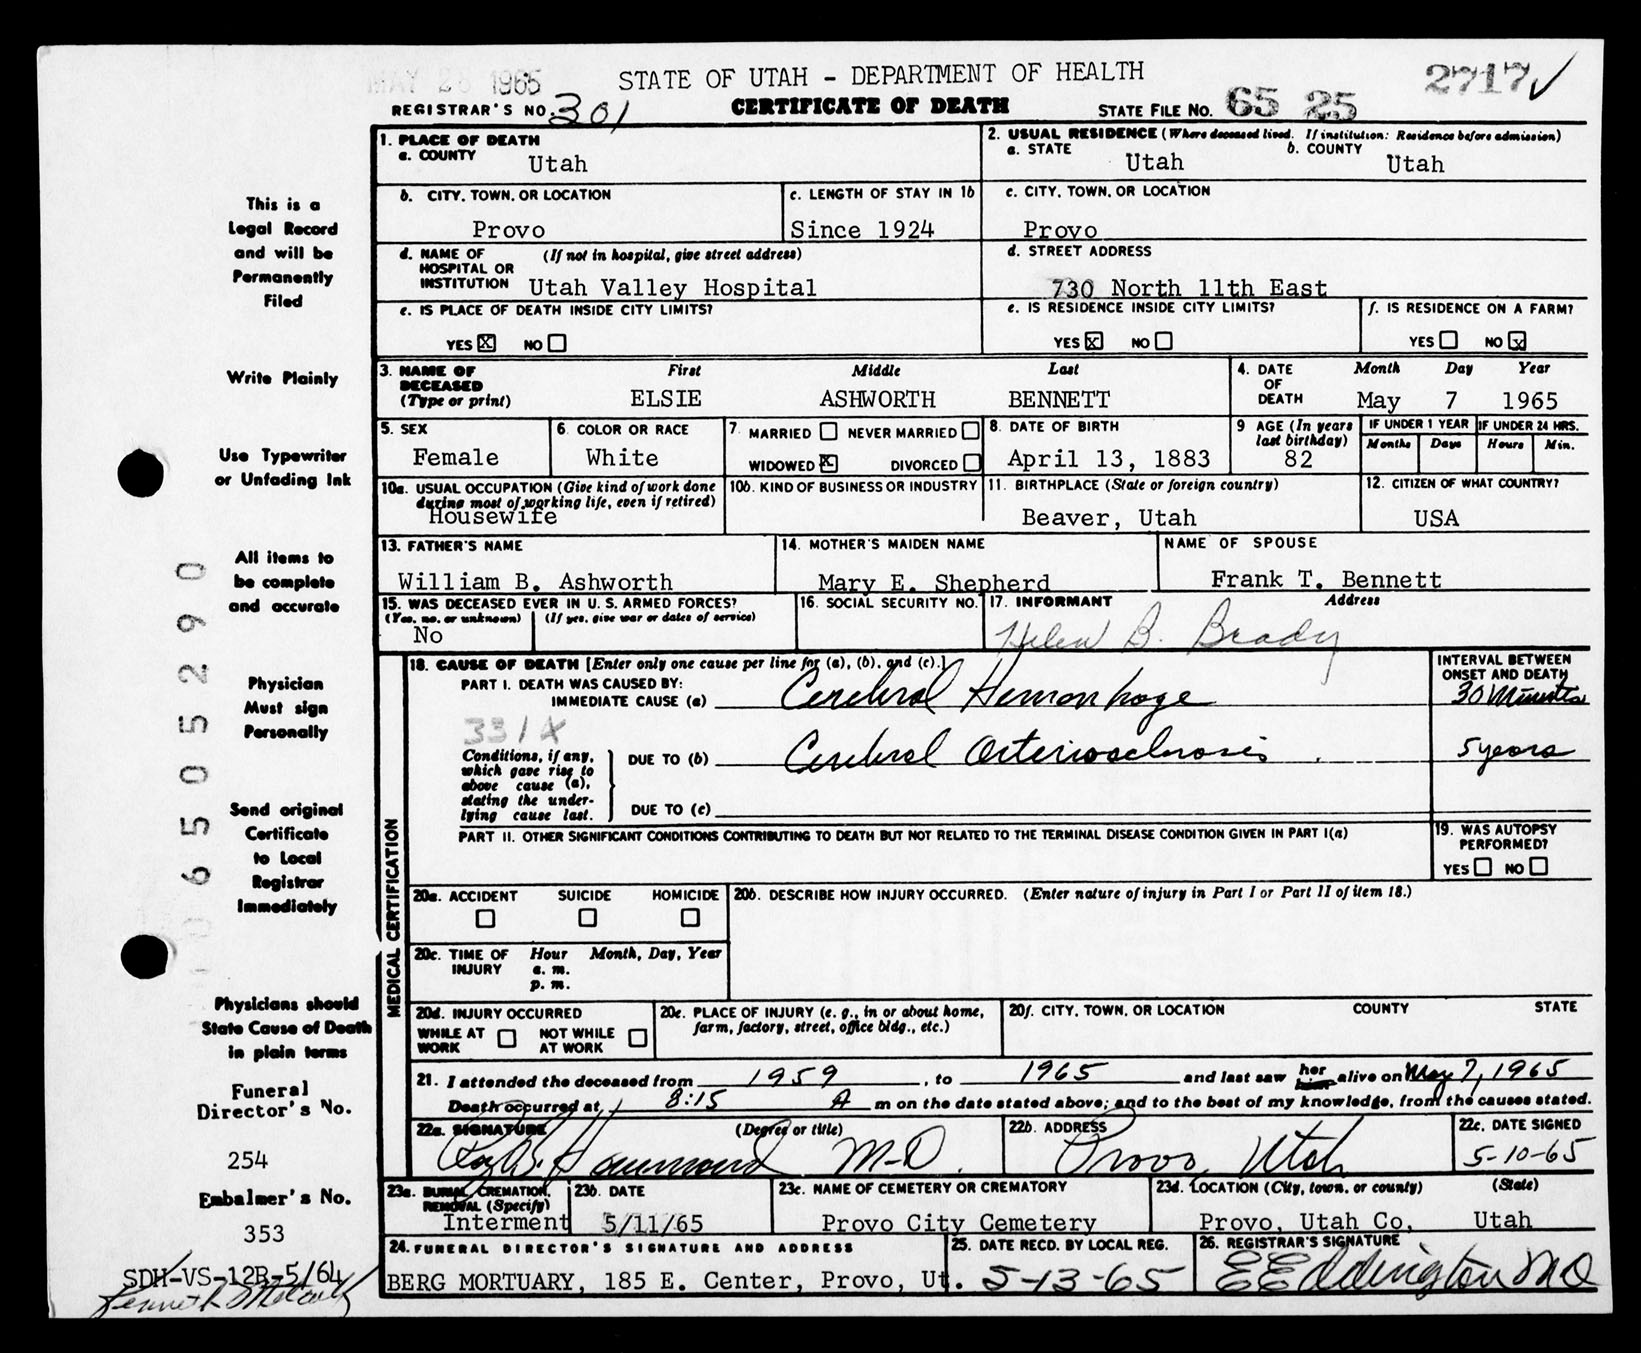 MAY 28 1965
STATE OF UTAH - DEPARTMENT OF HEALTH
2717 ✓
REGISTRAR'S NO. 301
CERTIFICATE OF DEATH
STATE FILE NO. 65 25
This is a
Legal Record
and will be
Permanently
Filed
Write Plainly
Use Typewriter
or Unfading Ink
All items to
be complete
and accurate
Physician
Must sign
Personally
Send original
Certificate
to Local
Registrar
Immediately
Physicians should
State Cause of Death
in plain terms
Funeral
Director's No.
254
Embalmer's No.
353
SDH-VS-12B-5/64
Kenneth Metcalf
0 6 5 0 5 2 9 0
1. PLACE OF DEATH
a. COUNTY Utah
2. USUAL RESIDENCE (Where deceased lived. If institution: Residence before admission)
a. STATE Utah b. COUNTY Utah
b. CITY, TOWN, OR LOCATION Provo
c. LENGTH OF STAY IN 1b Since 1924
c. CITY, TOWN, OR LOCATION Provo
d. NAME OF (If not in hospital, give street address)
HOSPITAL OR
INSTITUTION Utah Valley Hospital
d. STREET ADDRESS
730 North 11th East
e. IS PLACE OF DEATH INSIDE CITY LIMITS?
YES X NO
e. IS RESIDENCE INSIDE CITY LIMITS?
YES X NO
f. IS RESIDENCE ON A FARM?
YES NO X
3. NAME OF DECEASED (Type or print) First Middle Last
ELSIE ASHWORTH BENNETT
4. DATE OF DEATH Month Day Year
May 7 1965
5. SEX Female
6. COLOR OR RACE White
7. MARRIED NEVER MARRIED
WIDOWED X DIVORCED
8. DATE OF BIRTH April 13, 1883
9 AGE (In years last birthday) 82
IF UNDER 1 YEAR IF UNDER 24 HRS.
Months Days Hours Min.
10a. USUAL OCCUPATION (Give kind of work done
during most of working life, even if retired)
Housewife
10b. KIND OF BUSINESS OR INDUSTRY
11. BIRTHPLACE (State or foreign country)
Beaver, Utah
12. CITIZEN OF WHAT COUNTRY?
USA
13. FATHER'S NAME
William B. Ashworth
14. MOTHER'S MAIDEN NAME
Mary E. Shepherd
NAME OF SPOUSE
Frank T. Bennett
15. WAS DECEASED EVER IN U. S. ARMED FORCES?
(Yes, no, or unknown) (If yes, give war or dates of service)
No
16. SOCIAL SECURITY NO.
17. INFORMANT Address
Helen B. Brady
MEDICAL CERTIFICATION
18. CAUSE OF DEATH [Enter only one cause per line for (a), (b), and (c).]
INTERVAL BETWEEN
ONSET AND DEATH
PART I. DEATH WAS CAUSED BY:
IMMEDIATE CAUSE (a) Cerebral Hemorrhage 30 Minutes
331X
Conditions, if any,
which gave rise to
above cause (a),
stating the under-
lying cause last.
DUE TO (b) Cerebral Arteriosclerosis 5 years
DUE TO (c)
PART II. OTHER SIGNIFICANT CONDITIONS CONTRIBUTING TO DEATH BUT NOT RELATED TO THE TERMINAL DISEASE CONDITION GIVEN IN PART I(a)
19. WAS AUTOPSY
PERFORMED?
YES NO
20a. ACCIDENT SUICIDE HOMICIDE
20b. DESCRIBE HOW INJURY OCCURRED. (Enter nature of injury in Part I or Part II of item 18.)
20c. TIME OF INJURY Hour Month, Day, Year
a. m.
p. m.
20d. INJURY OCCURRED
WHILE AT WORK NOT WHILE AT WORK
20e. PLACE OF INJURY (e. g., in or about home,
farm, factory, street, office bldg., etc.)
20f. CITY, TOWN, OR LOCATION COUNTY STATE
21. I attended the deceased from 1959, to 1965 and last saw her him alive on May 7, 1965
Death occurred at 8:15 A m on the date stated above; and to the best of my knowledge, from the causes stated.
22a. SIGNATURE (Degree or title)
Roy B. Hammond M-D.
22b. ADDRESS
Provo, Utah
22c. DATE SIGNED
5-10-65
23a. BURIAL, CREMATION,
REMOVAL (Specify)
Interment
23b. DATE
5/11/65
23c. NAME OF CEMETERY OR CREMATORY
Provo City Cemetery
23d. LOCATION (City, town, or county) (State)
Provo, Utah Co, Utah
24. FUNERAL DIRECTOR'S SIGNATURE AND ADDRESS
BERG MORTUARY, 185 E. Center, Provo, Ut.
25. DATE RECD. BY LOCAL REG.
5-13-65
26. REGISTRAR'S SIGNATURE
E E Eddington MD